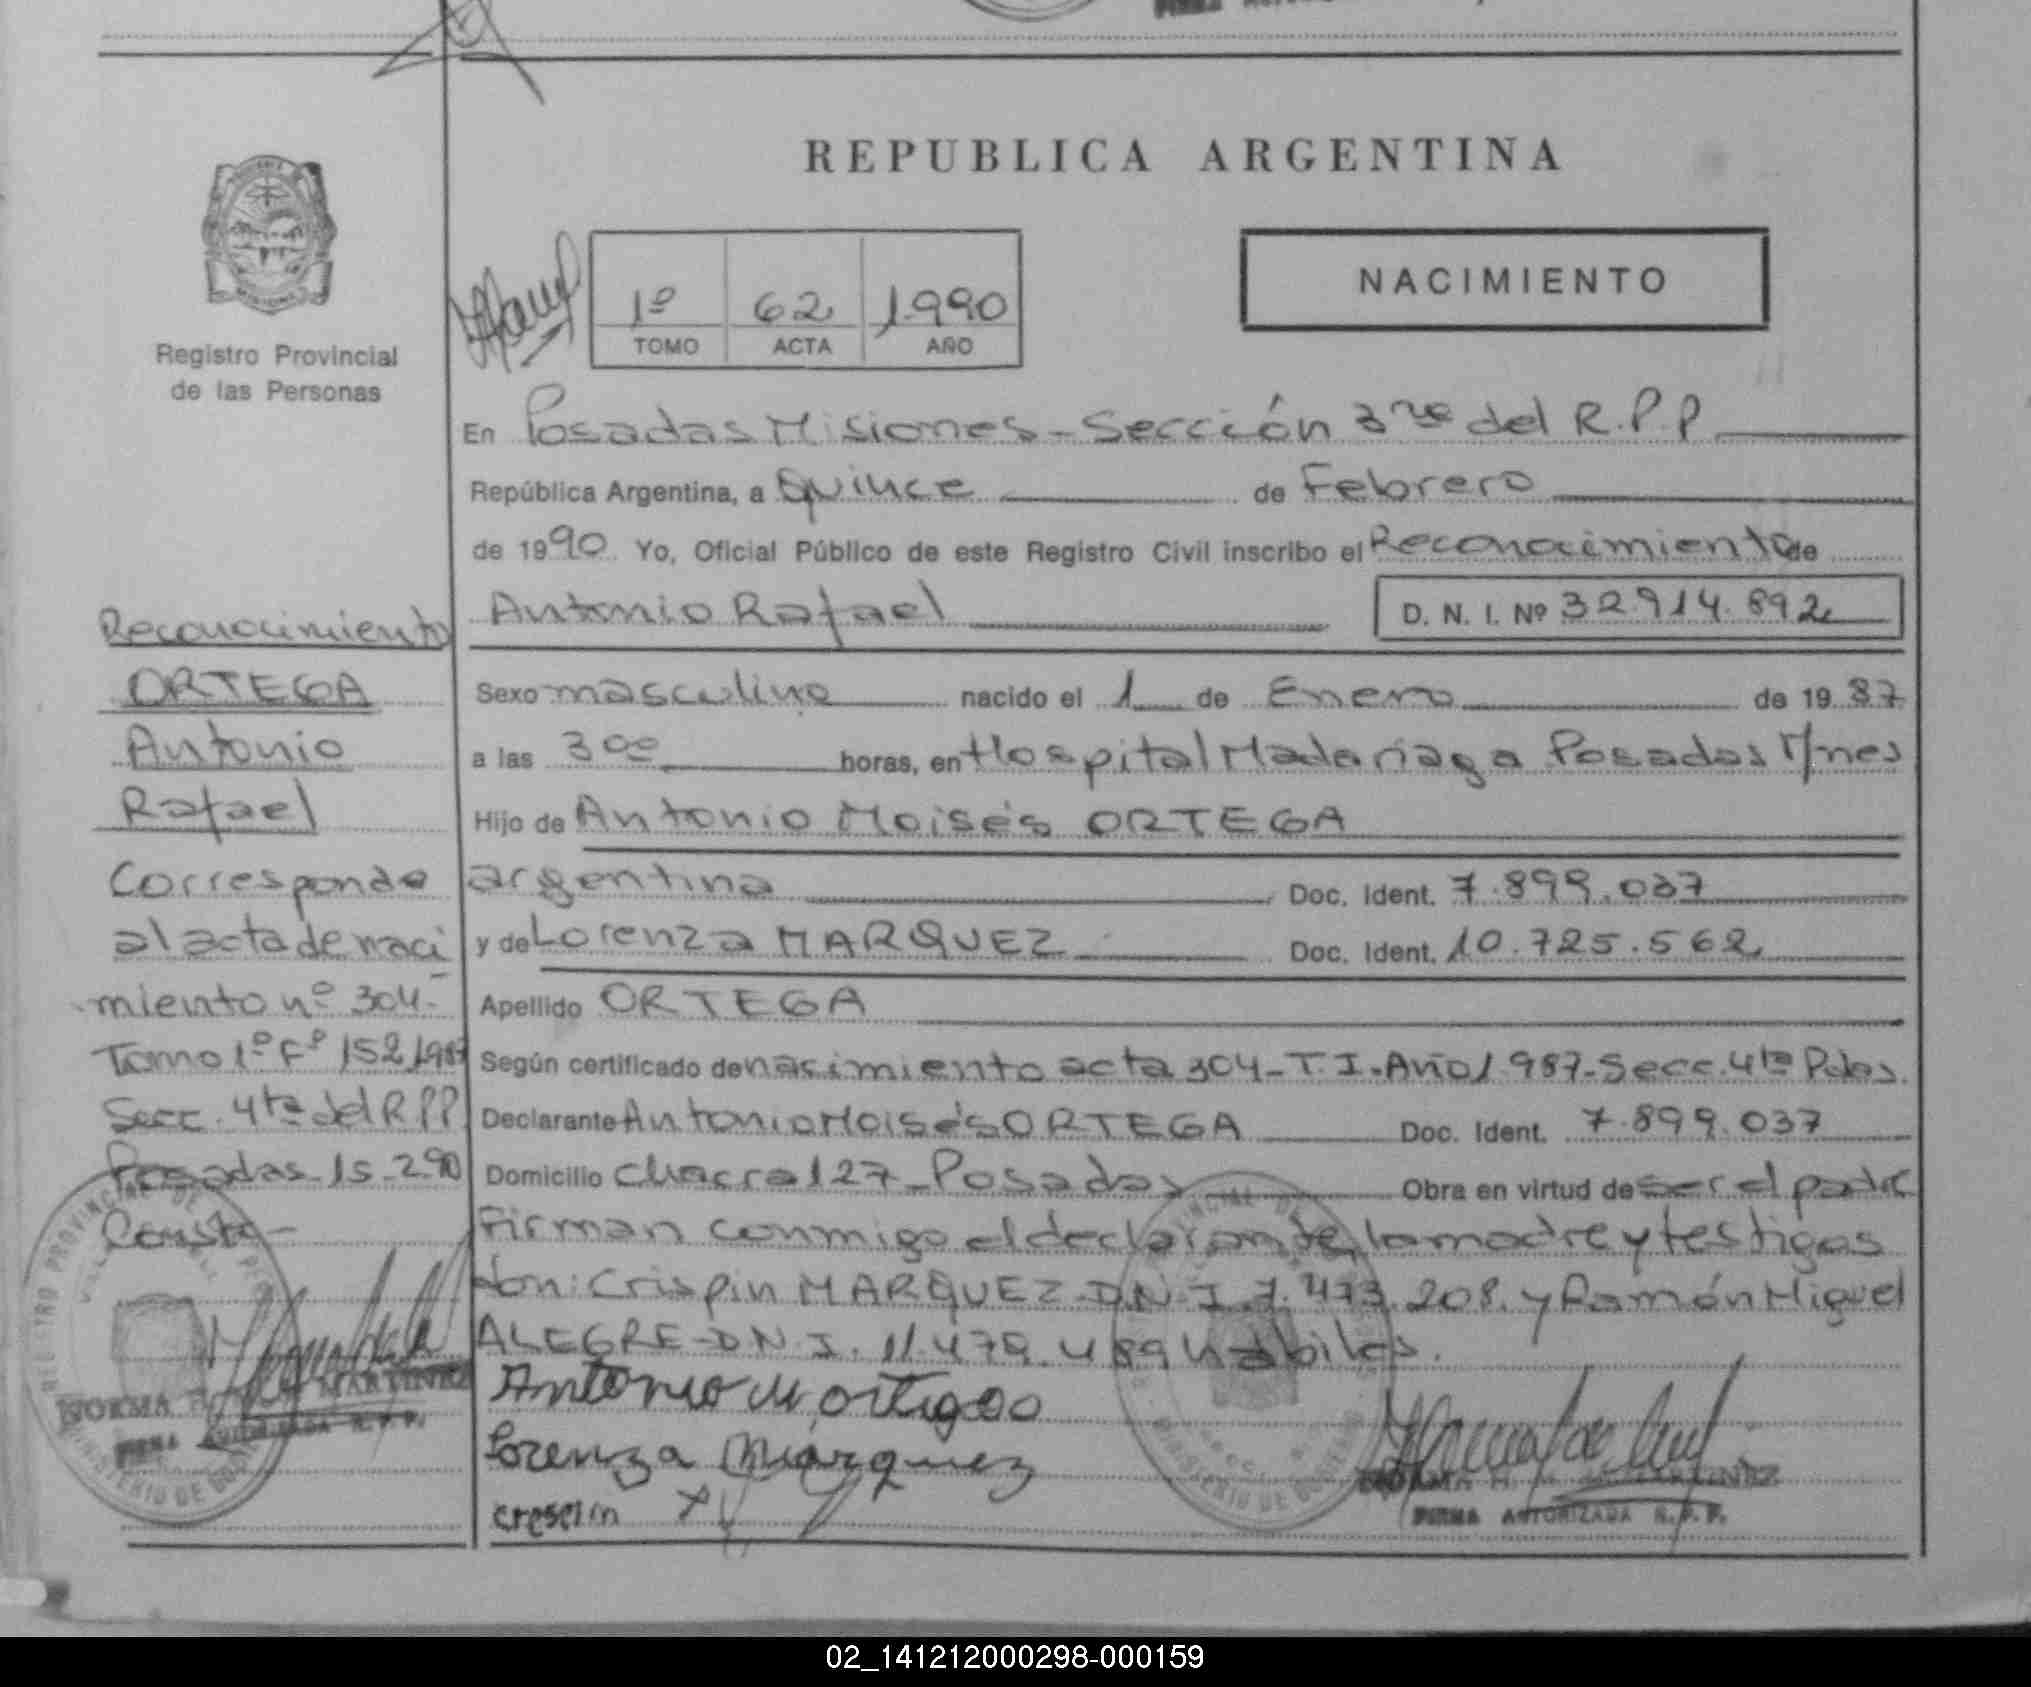 REPUBLICA ARGENTINA
Registro Provincial
de las Personas
1º 62 1990
TOMO ACTA AÑO
NACIMIENTO
En Posadas Misiones - Sección 3ra del R.P.P
República Argentina, a Quince de Febrero
de 1990. Yo, Oficial Público de este Registro Civil inscribo el Reconocimiento de
Antonio Rafael D. N. I. Nº 32.914.892
Sexo masculino nacido el 1 de Enero de 1987
a las 3 00 horas, en Hospital Madariaga Posadas M/nes
Hijo de Antonio Moisés ORTEGA
argentina Doc. Ident. 7.899.037
y de Lorenza MARQUEZ Doc. Ident. 10.725.562
Apellido ORTEGA
Según certificado de nacimiento acta 304 - T.I - Año 1.987 - Secc. 4ta Pdas.
Declarante Antonio Moisés ORTEGA Doc. Ident. 7.899.037
Domicilio Chacra 127 - Posadas Obra en virtud de ser el padre
Firman conmigo el declarante, la madre y testigos
don: Crispin MARQUEZ D.N.I. 7.473.208. y Ramón Miguel
ALEGRE - D.N.I. 11.479.489 hábiles.
Antonio M ortega
Lorenza Márquez
crespin
FIRMA AUTORIZADA R.P.P.
Reconocimiento
ORTEGA
Antonio
Rafael
Corresponde
al acta de naci
miento nº 304 -
Tomo 1º Fº 152, 1987
Secc. 4ta del R P P
Posadas - 15 - 2 - 90
Conste -
NORMA MARTINEZ
FIRMA AUTORIZADA R.P.P.
02_141212000298-000159